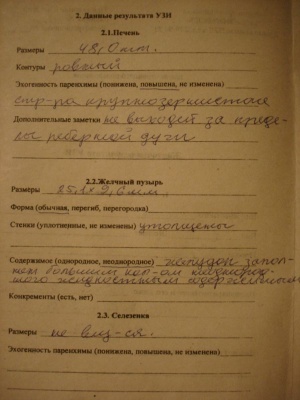 2. Данные результата УЗИ
2.1.Печень
Размеры 48,0 mm.
Контуры ровный
Эхогенность паренхимы (понижена, повышена, не изменена)
стр-ра крупнозернистая
Дополнительные заметки не выходит за преде-
лы реберной дуги
2.2.Желчный пузырь
Размеры 25,1 х 9,6 мм.
Форма (обычная, перегиб, перегородка)
Стенки (уплотненные, не изменены) утолщены
Содержимое (однородное, неоднородное) желудок запол-
нен большим кол-ом
жидкостным содержимым
Конкременты (есть, нет)
2.3. Селезенка
Размеры не виз-ся.
Эхогенность паренхимы (понижена, повышена, не изменена)